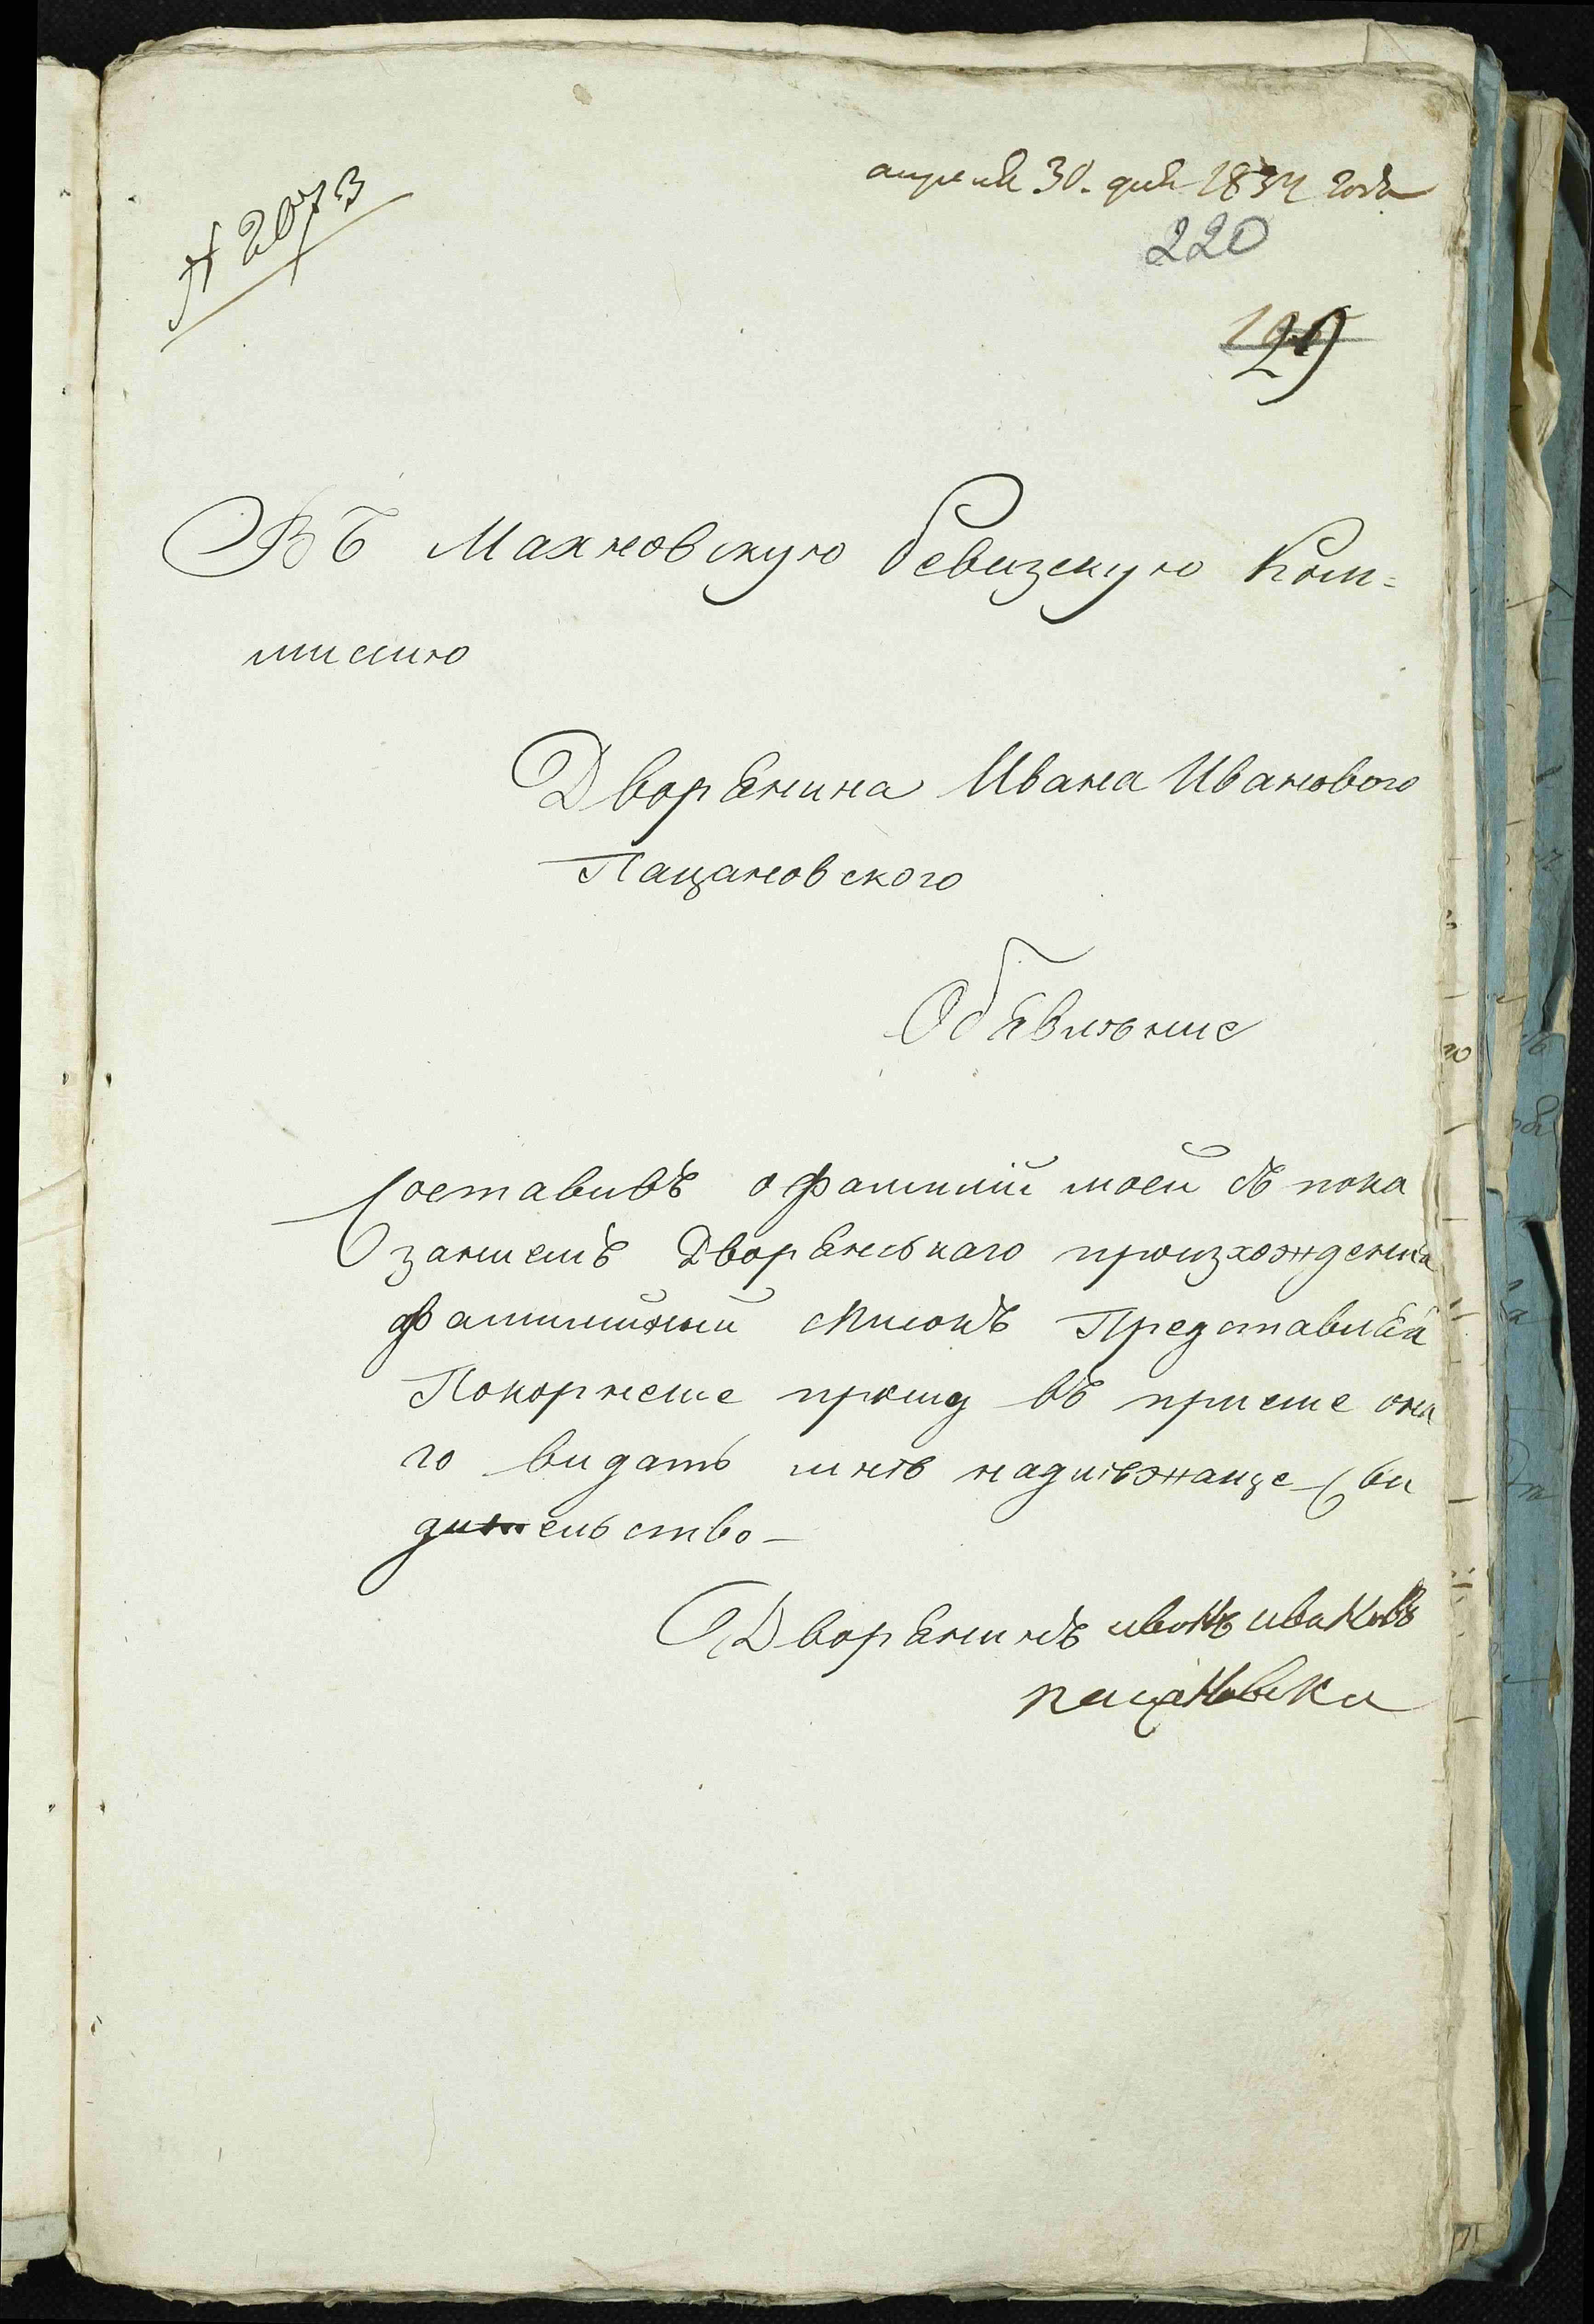 апреля 30. дня 1834 года
№ 2073
220
129
Въ Махновскую Ревизскую Ком=
миссию
Дворянина Ивана Иванового
Пацановского
Объявление
Составивъ о фамилій моей съ пока
заниемъ Дворянскаго произхожденія
фамилийный списокъ Представляя
Покорнеше прошу въ приеме она
го видать мнѣ надлѣжаще Сви
дительство –
Дворянинъ иванъ ивановъ
пацановски